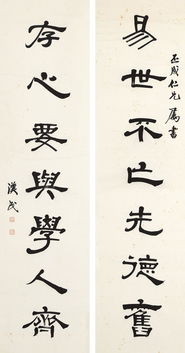 易世不亡先德舊
正成仁兄屬書
存心要與學人齊
漢民